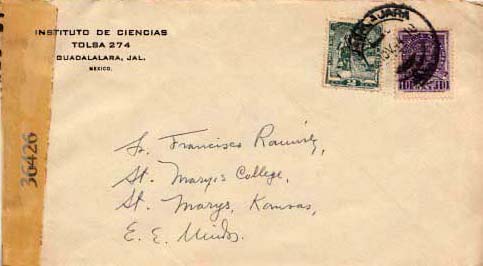 INSTITUTO DE CIENCIAS
TOLSA 274
GUADALALARA, JAL.
MEXICO.
36426
Sr. Francisco Ramírez,
St. Mary's College,
St. Marys, Kansas,
E. E. Unidos.